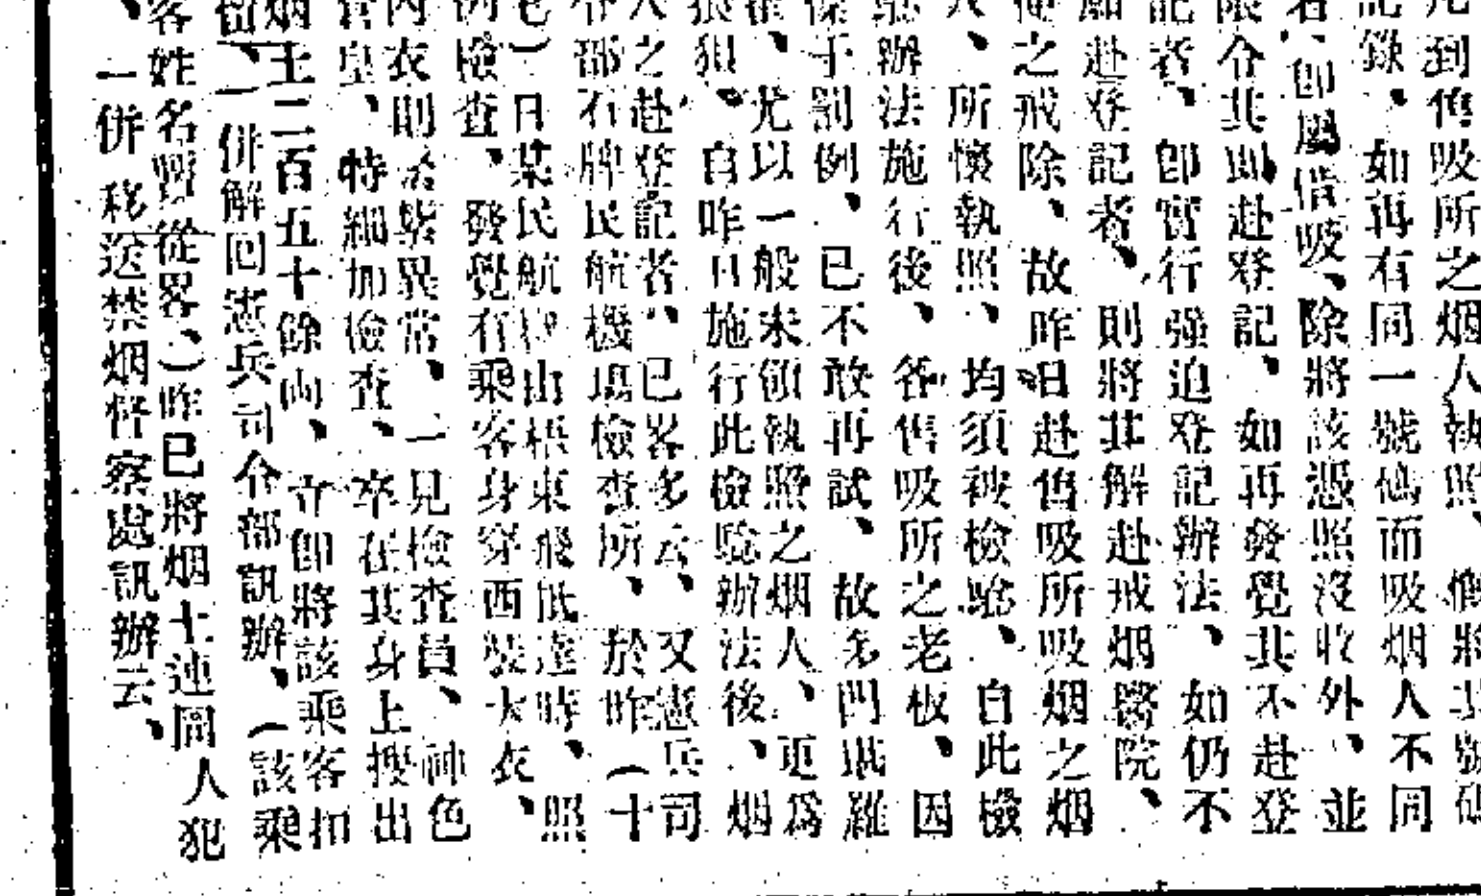 凡到售吸所之烟人執照、
記錄、如再有同一號碼而吸烟人不同
者、卽屬借吸、除將該憑照沒收外、並
限令其即赴登記、如再發覺其不赴登
記者、卽實行强迫登記辦法、如仍不
赴登記者、則將其解赴戒烟醫院、
之戒除、故昨日赴售吸所吸烟之烟
人、所懷執照、均須被檢驗、自此檢
驗辦法施行後、各售吸所之老板、因
于罰例、已不敢再試、故多門堪羅
雀、尤以一般未領執照之烟人、更爲
狼狽、自昨日施行此檢驗辦法後、烟
人之赴登記者、已畧多云、又憲兵司
令部石牌民航機塲檢查所、於昨（十
七）日某民航機由梧東飛抵達時、照
例檢查、發覺有乘客身穿西裝大衣、
內衣則 裝異常、一見檢查員、神色
倉皇、特細加檢查、卒在其身上搜出
烟土二百五十餘両、立卽將該乘客扣
留、一併解回憲兵司令部訊辦、（該乘
客姓名暫從畧、）昨已將烟土連同人犯
、一併移送禁烟督察處訊辦云、